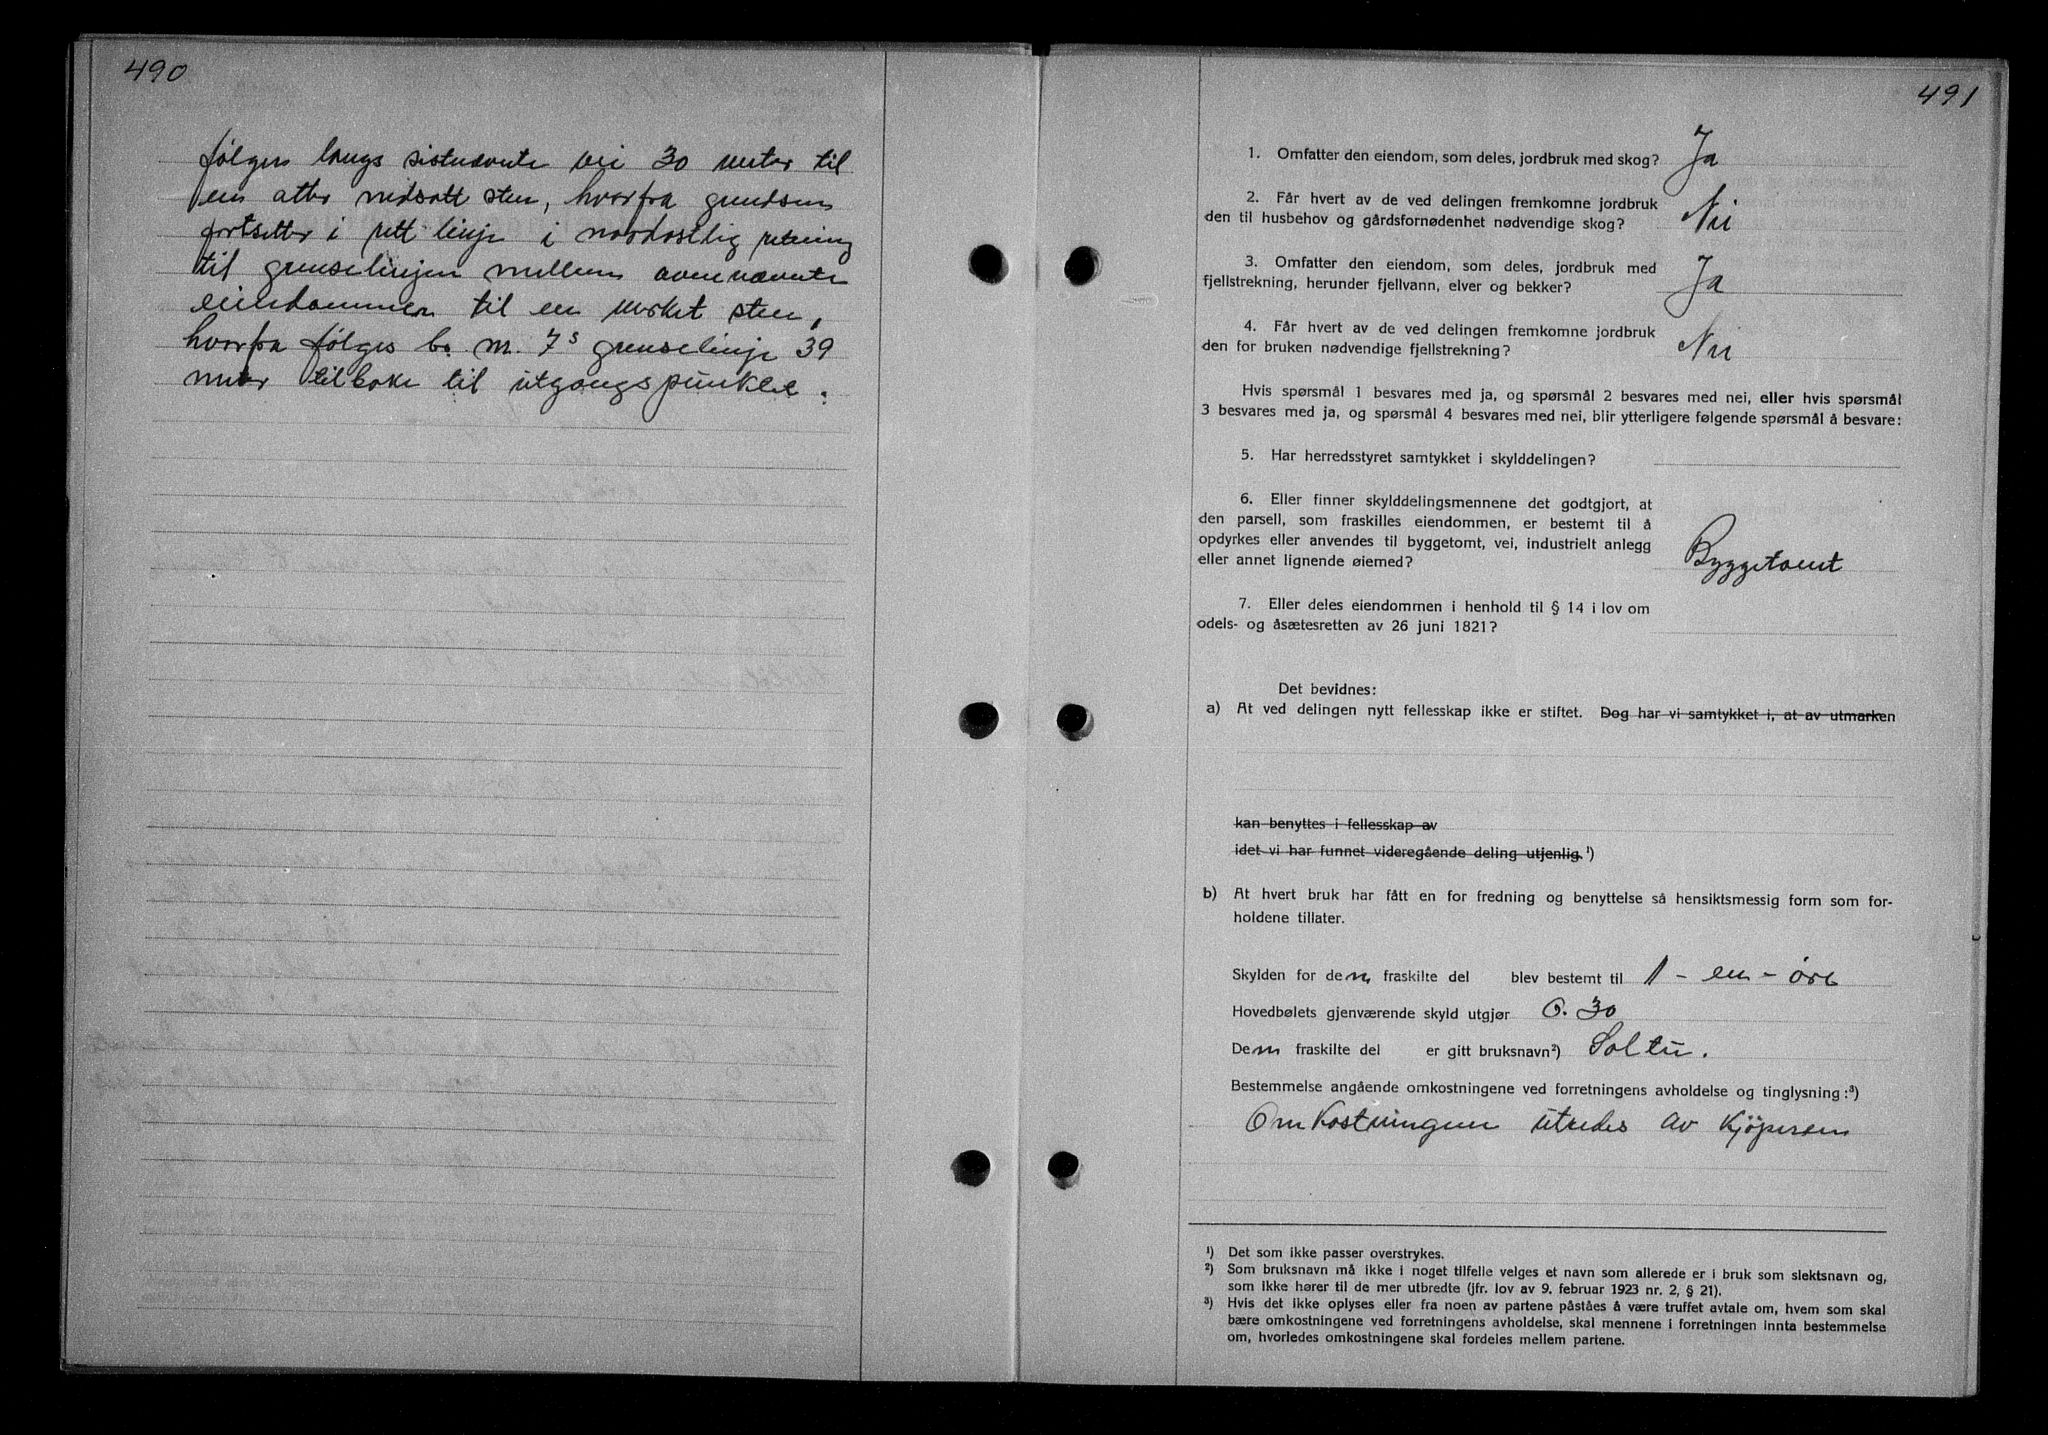 490
følges langs sistnævnte vei 30 meter til
en atter nedsatt sten, hvorfra grendsen
fortsetter i rett linje i nordostlig retning
til grenselinjen mellem ovennævnte
eiendommer til en merket sten,
hvorfra følges b. m. 7s grenselinje 39
meter tilbake til utgangspunktet.
491
1. Omfatter den eiendom, som deles, jordbruk med skog? Ja
2. Får hvert av de ved delingen fremkomne jordbruk
den til husbehov og gårdsfornødenhet nødvendige skog? Nei
3. Omfatter den eiendom, som deles, jordbruk med
fjellstrekning, herunder fjellvann, elver og bekker? Ja
4. Får hvert av de ved delingen fremkomne jordbruk
den for bruken nødvendige fjellstrekning? Nei
Hvis spørsmål 1 besvares med ja, og spørsmål 2 besvares med nei, eller hvis spørsmål
3 besvares med ja, og spørsmål 4 besvares med nei, blir ytterligere følgende spørsmål å besvare:
5. Har herredsstyret samtykket i skylddelingen?
6. Eller finner skylddelingsmennene det godtgjort, at
den parsell, som fraskilles eiendommen, er bestemt til å
opdyrkes eller anvendes til byggetomt, vei, industrielt anlegg
eller annet lignende øiemed? Byggetomt
7. Eller deles eiendommen i henhold til § 14 i lov om
odels- og åsætesretten av 26 juni 1821?
Det bevidnes:
a) At ved delingen nytt fellesskap ikke er stiftet. Dog har vi samtykket i, at av utmarken
kan benyttes i fellesskap av
idet vi har funnet videregående deling utjenlig.¹)
b) At hvert bruk har fått en for fredning og benyttelse så hensiktsmessig form som for-
holdene tillater.
Skylden for den fraskilte del blev bestemt til 1 - en - øre
Hovedbølets gjenværende skyld utgjør 0.30
Den fraskilte del er gitt bruksnavn²) Soltu.
Bestemmelse angående omkostningene ved forretningens avholdelse og tinglysning:³)
Omkostningene utredes av Kjøperen
¹) Det som ikke passer overstrykes.
²) Som bruksnavn må ikke i noget tilfelle velges et navn som allerede er i bruk som slektsnavn og,
som ikke hører til de mer utbredte (jfr. lov av 9. februar 1923 nr. 2, § 21).
³) Hvis det ikke oplyses eller fra noen av partene påståes å være truffet avtale om, hvem som skal
bære omkostningene ved forretningens avholdelse, skal mennene i forretningen innta bestemmelse
om, hvorledes omkostningene skal fordeles mellem partene.